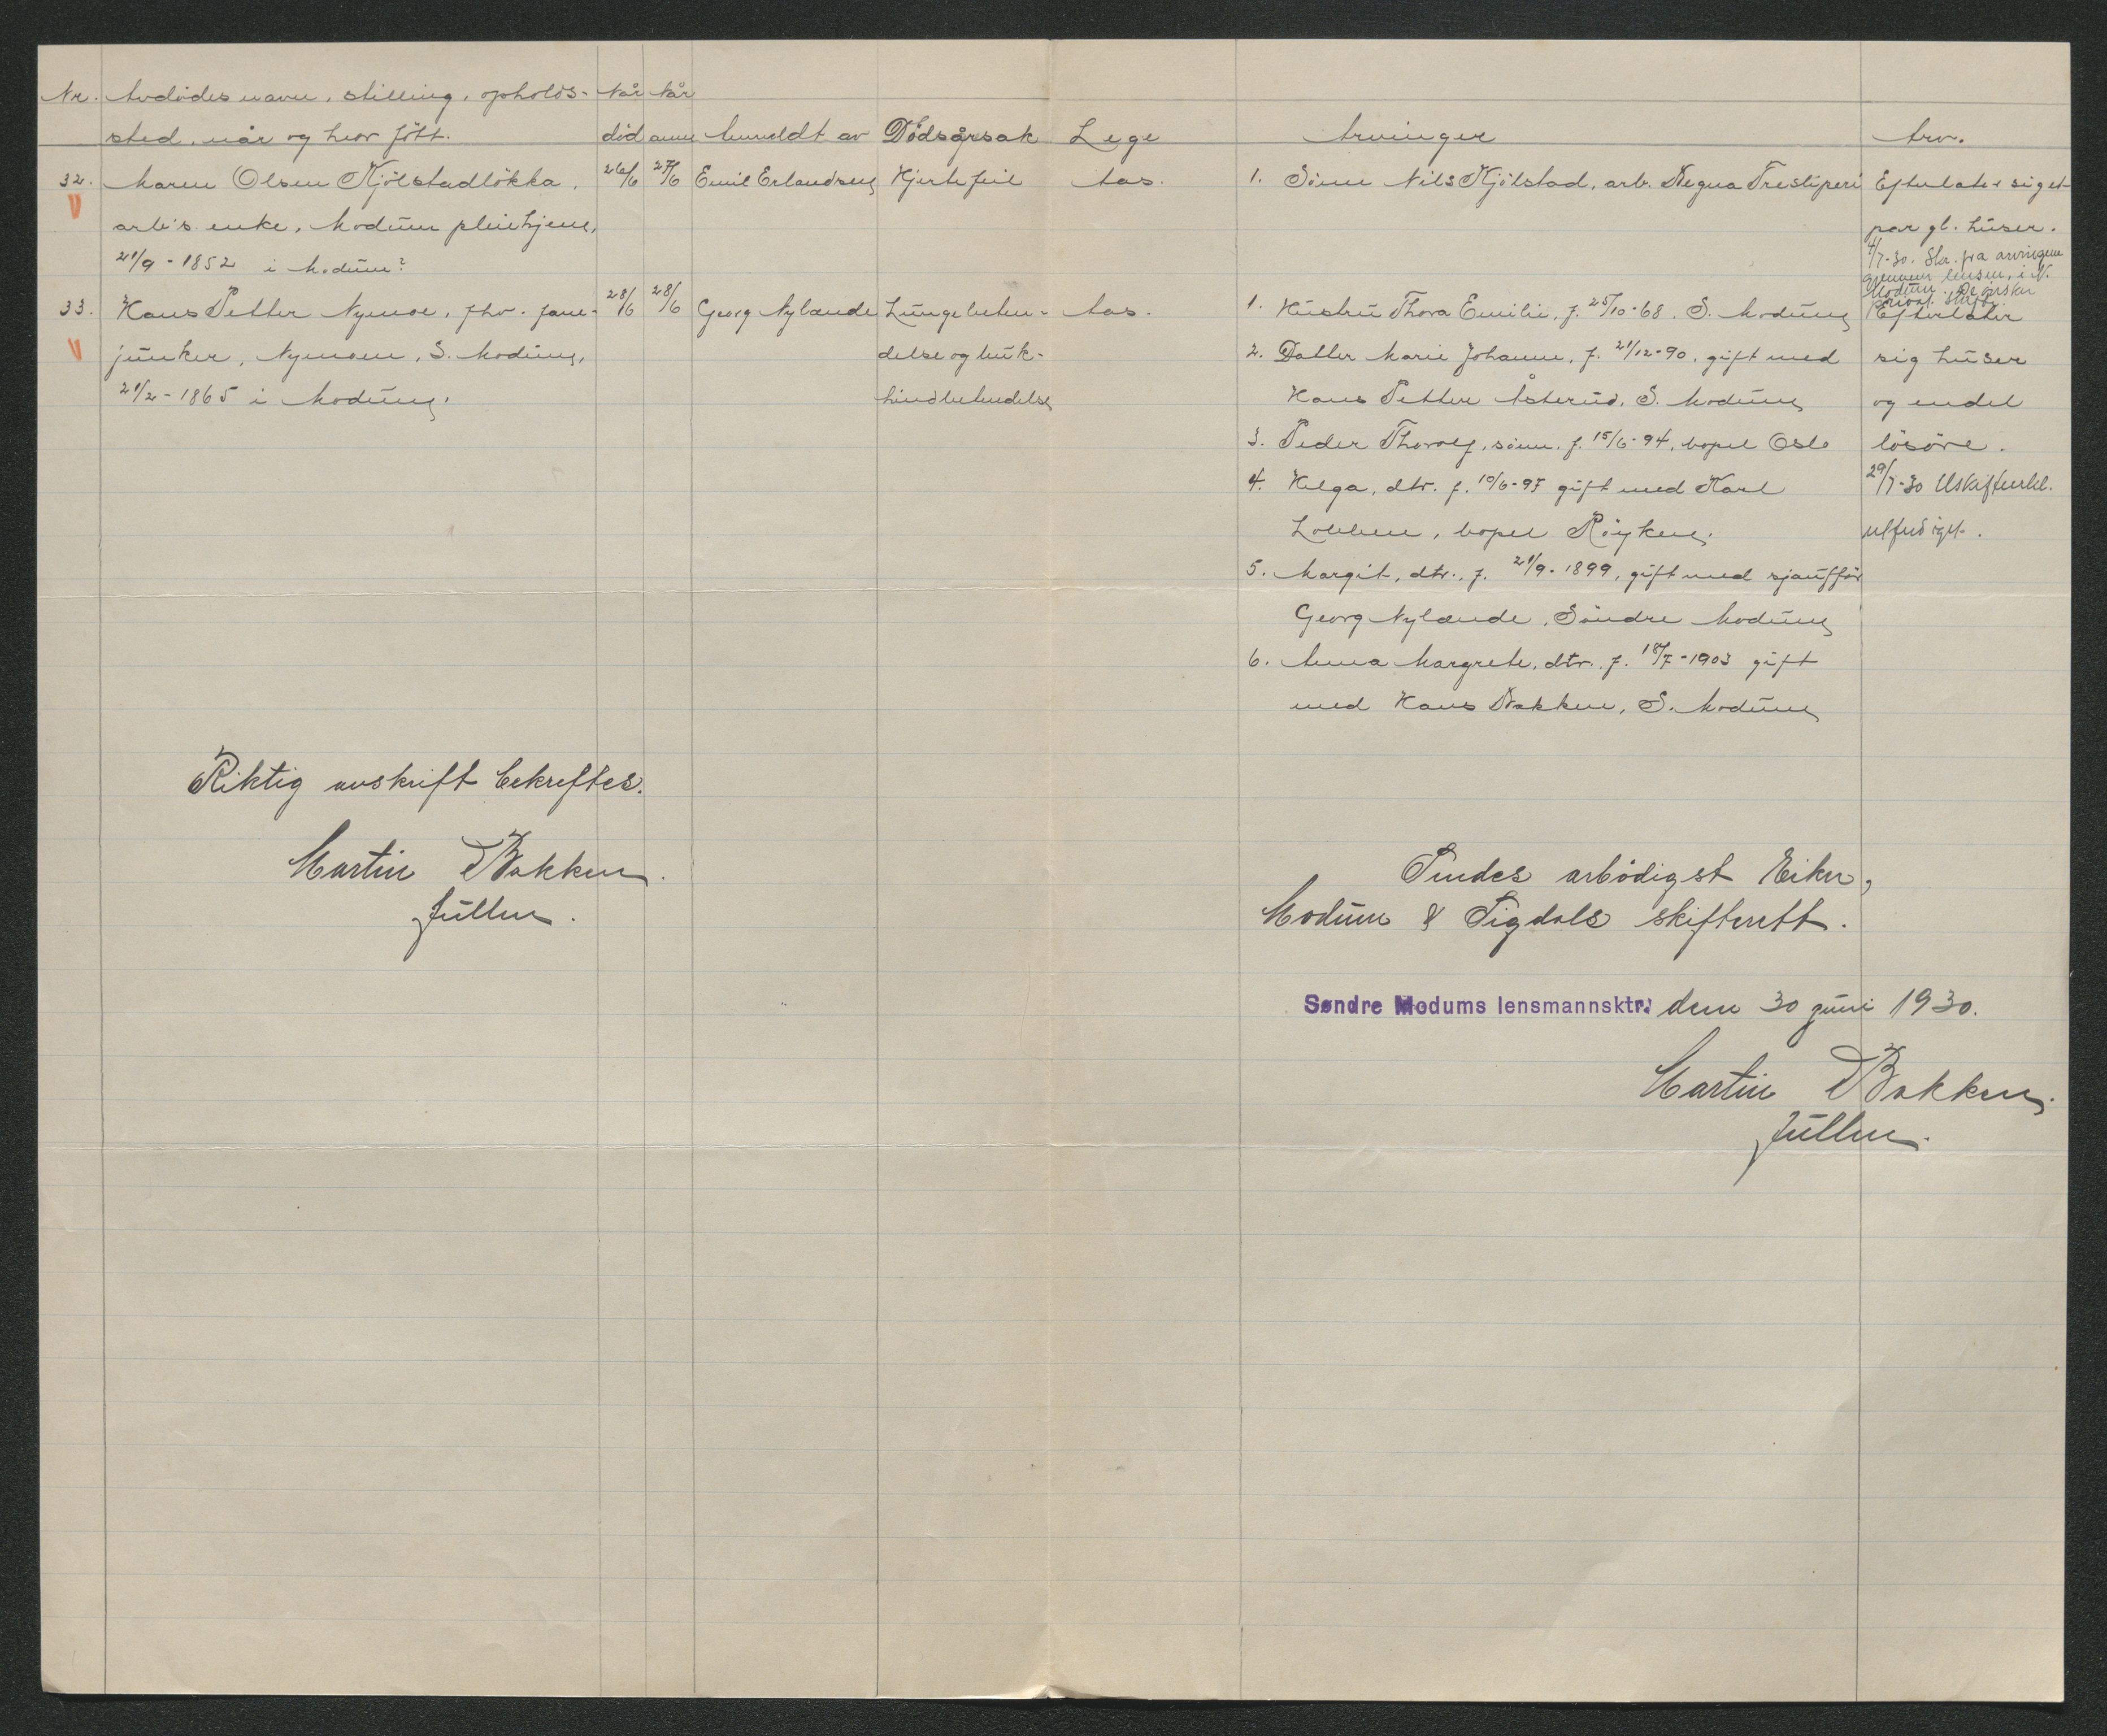 Nr. Avdødes navn, stilling, opholds- Når Når
sted, når og hvor født. død anm Anmeldt av Dödsårsak Lege Arvinger Arv.
32. Maren Olsen Kjölstadløkka, 26/6 27/6 Emil Erlandsen Hjertefeil Aas. 1. Sönn Nils Kjölstad, arb. Degna Tresliperi Efterlater sig et
V arb's enke, Modum pleiehjem, par gl. huser.
21/9-1852 i Modum? 4/7-30. Skr. fra arvingene
gjennem lensm. i N.
Modum. De önsker
privat skifte.
33. Hans Petter Nymoe, fhv. fane- 28/6 28/6 Georg Nylænde Lungebeten- Aas. 1. Hustru Thora Emilie, f. 25/10-68. S. Modum Efterlater
V junker, Nymoen, S. Modum, delse og buk- 2. Datter Marie Johanne, f. 21/12-90, gift med sig huser
21/2-1865 i Modum. hindbetendelse Hans Petter Åsterud, S. Modum og endel
3. Peder Thoralf, sönn, f. 15/6-94, bopel Oslo lösöre.
4. Helga, dtr. f. 10/6-97 gift med Karl 29/7-30 Uskifteerkl.
bopel Röyken. utferdiget.
5. Margit, dtr., f. 21/9-1899, gift med sjauffør
Georg Nylænde, Söndre Modum
6. Anna Margrete, dtr. f. 18/7-1903 gift
med Hans Bakken, S. Modum
Riktig avskrift bekreftes.
Martin Bakken.
fullm.
Sendes ærbödigst Eiker,
Modum & Sigdals skifterett.
Søndre Modums lensmannsktr. den 30 juni 1930.
Martin Bakken.
fullm.